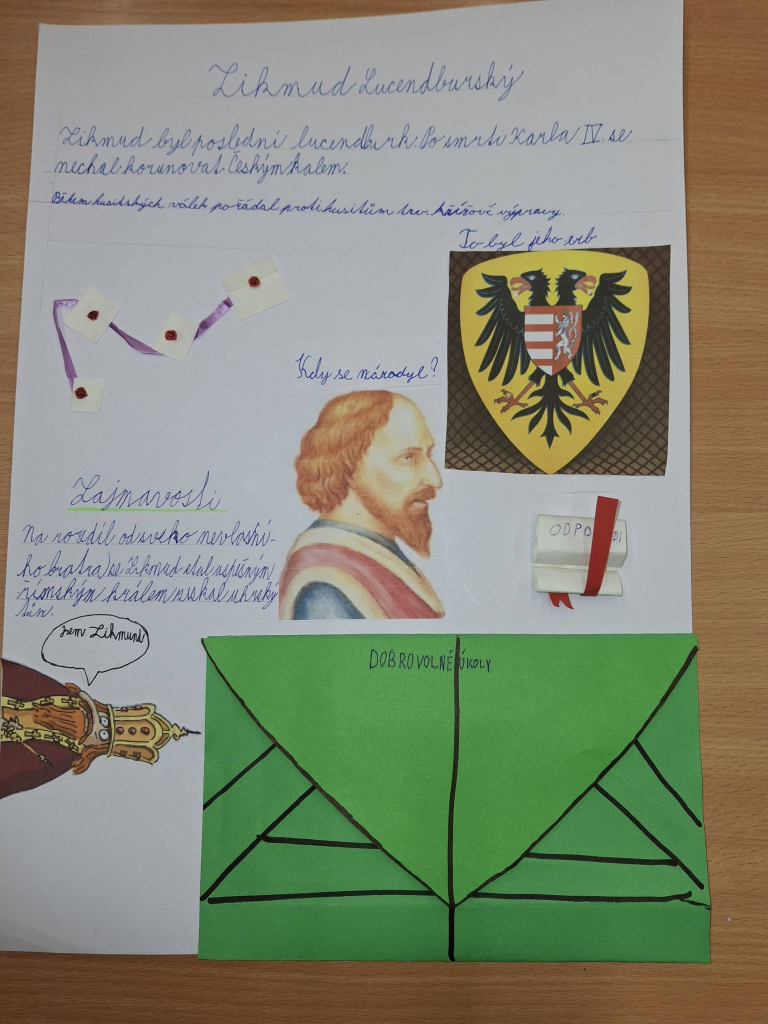 Zikmud Lucendburský
Zikmud byl poslední lucendburk. Po smrti Karla IV. se
nechal korunovat Českým kalem.
Během husitských válek pořádal protihusitům tzv. křížové výpravy.
To byl jeho erb
Kdy se národyl?
Zajmavosti
Na rozdíl od svého nevlastní-
ho bratra) se Zikmud stal uspěšným
římským králem získal uhrský
trůn.
ODPO DI
jsem Zikmund
DOBROVOLNÉ ÚKOLY